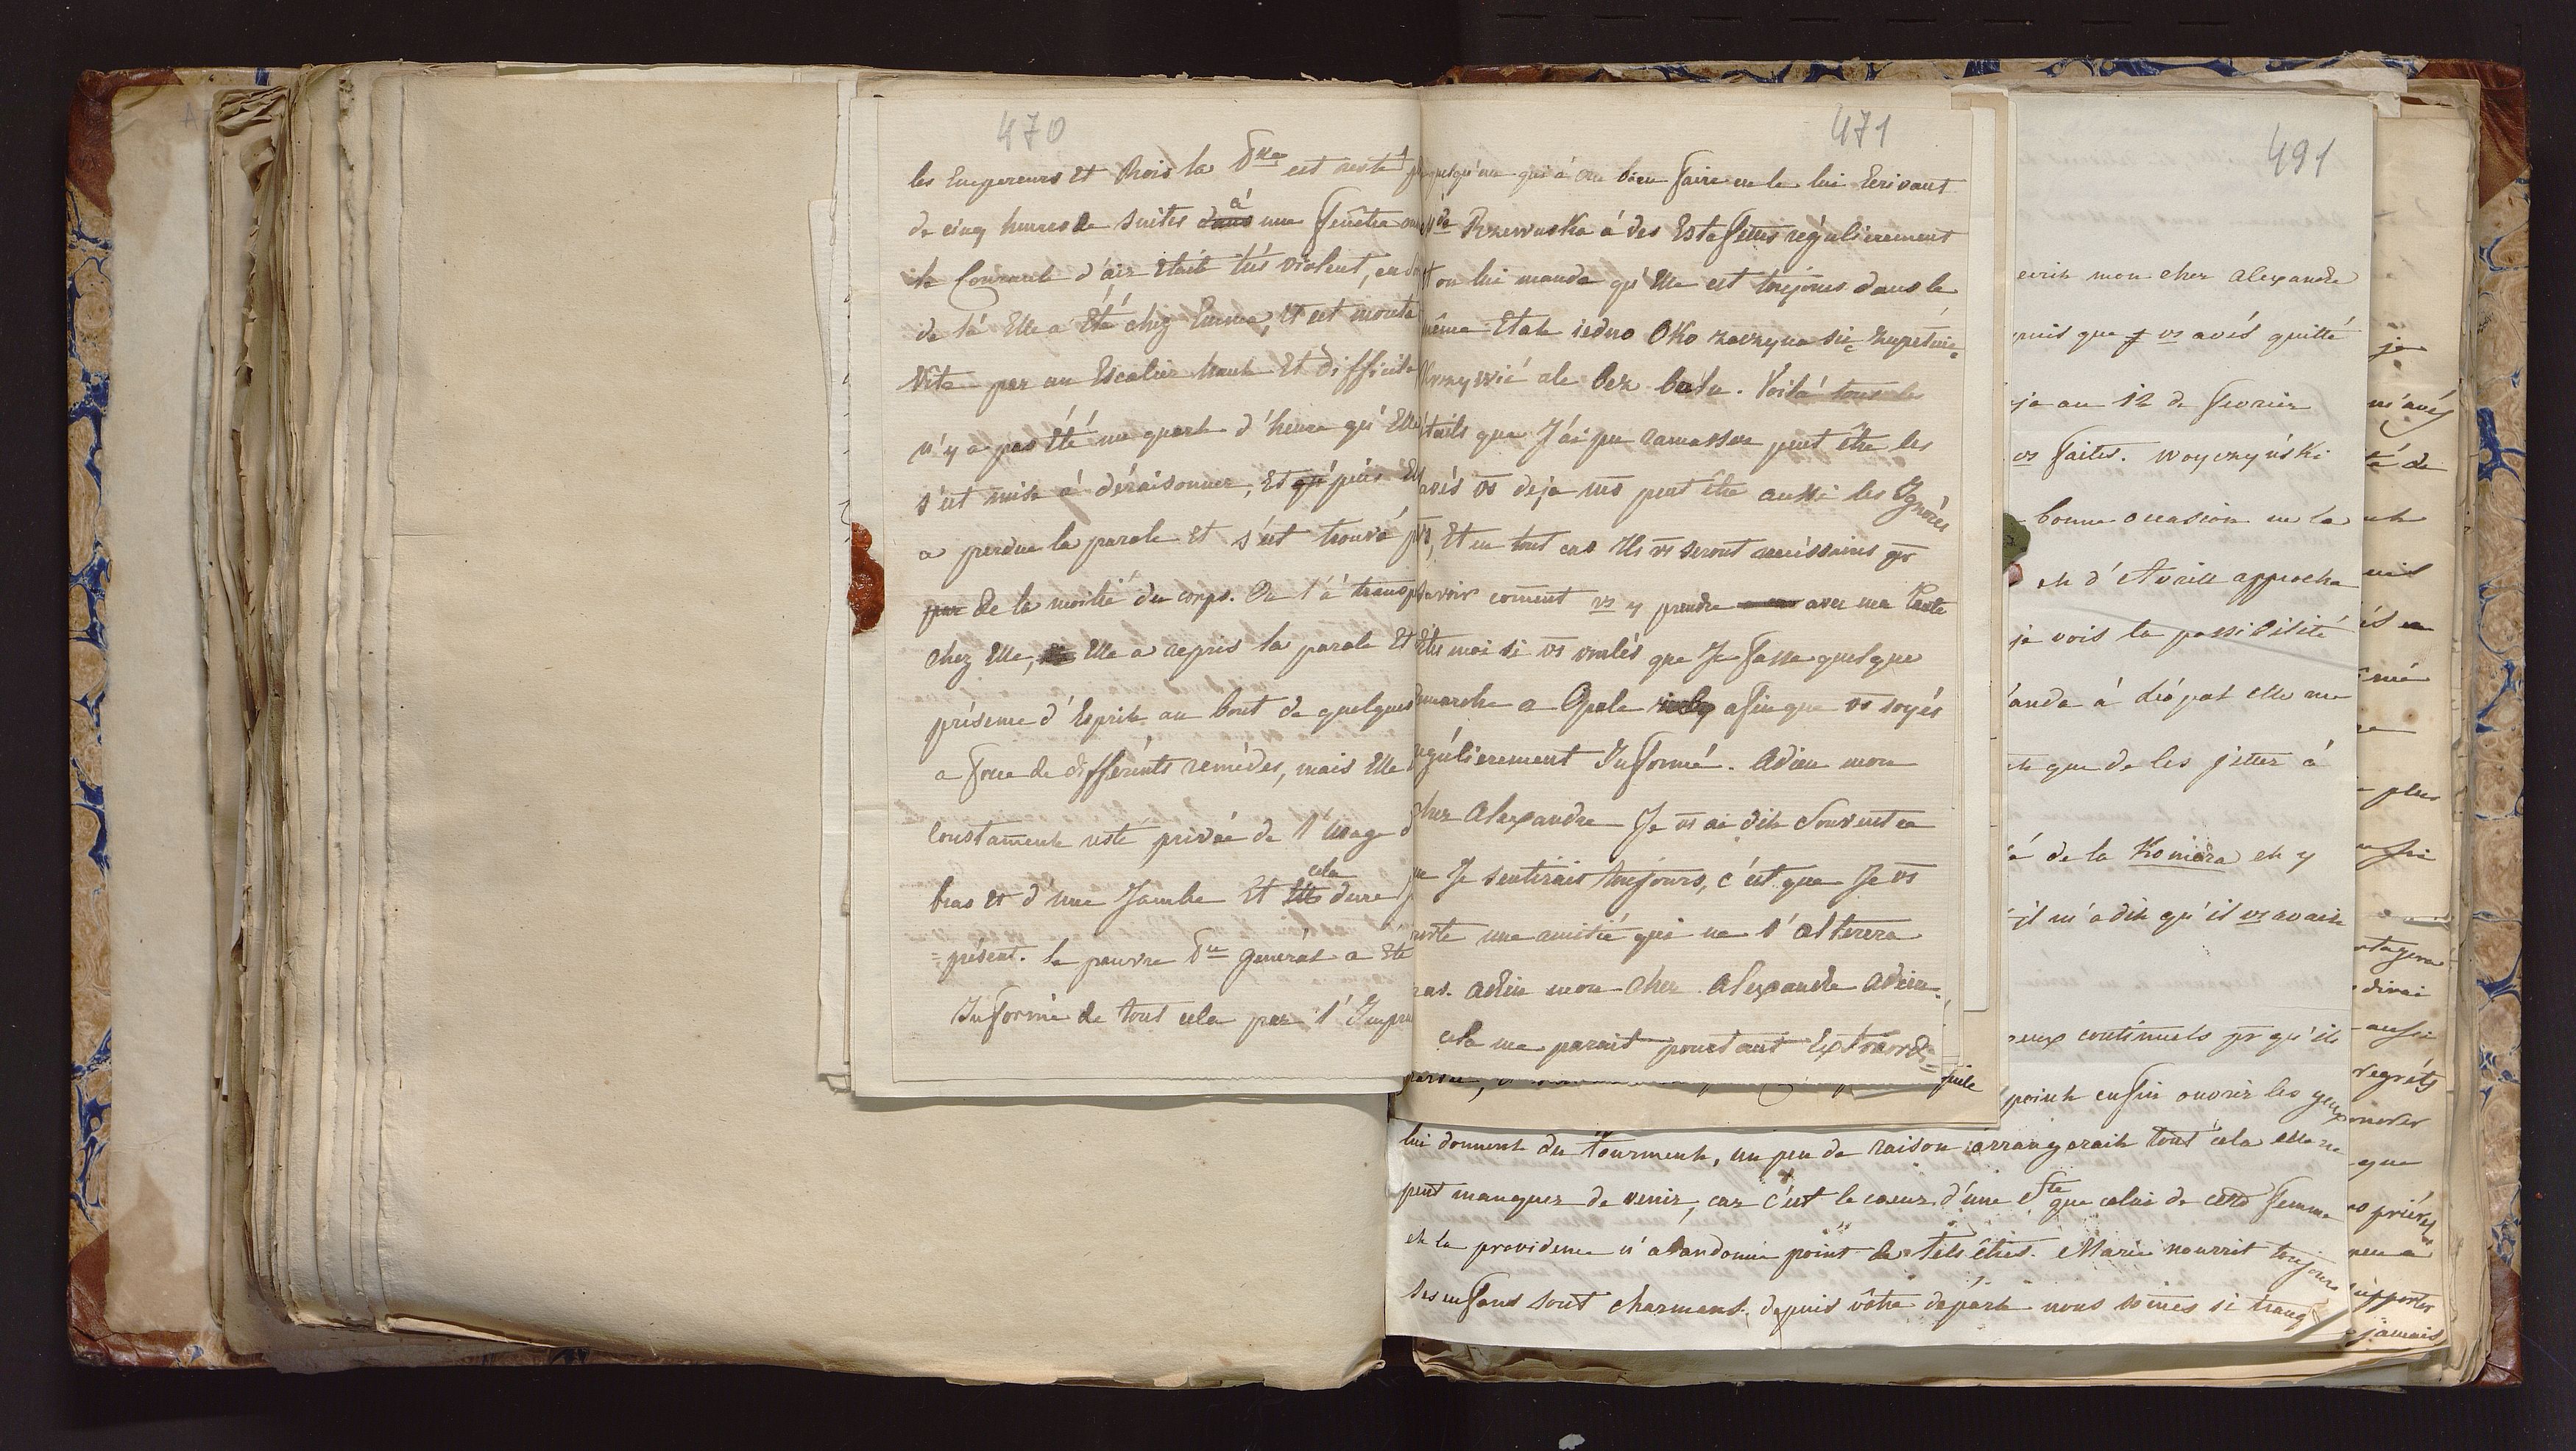 470
les Empereurs et Rois la Psse est resté
de cinq heures de suites dans à une fenêtre
le Courant d'air Etait très violent, en
de là Elle a Eté chez Emma, et est monté
Vite par un Escalier haut et difficile
n'y a pas Eté un quart d'heure qu'Elle
s'est mise à déraisonner, et qu' puis
a perdue la parole et s'est trouvé
par de la moitié du corps. On l'à transp
chez Elle, Elle a repris la parole et
présence d'Esprit au bout de quelques
a force de différents remèdes, mais Elle
Constament resté privée de l'usage d
bras et d'une Jambe et Elle cela dure
présent. le pauvre Pce général a Eté
Informé de tout cela par l'Impru
471
quelqu'un qui à cru bien faire en le lui Ecrivant
Mde Rzewuska à des Estafettes régulierement
et on lui mande qu'Elle est toujours dans le
même Etat iedno Oko zaczyna się zupełnie
Krzywić ale bez bolu. Voilà tous les
détails que J'ai pu ramasser peut être les
avés vs deja ms peut être aussi les Ignorés
vs, Et en tout cas Ils vs seront nécéssaires pr
savoir coment vs y prendre avec ma Tante
Dites moi si vs voulés que Je fasse quelque
demarche a Opole afin que vs soyés
régulierement Informé. Adieu mon
cher Alexandre Je vs ai dit Souvent ce
que Je sentirais toujours, c'est que Je vs
porte une amitié qui ne s'alterera
pas. Adieu mon cher Alexandre adieu.
cela me parait pourtant Extraord=
491
ecrit mon cher Alexandre
puis que vs avés quitté
ja au 12 de fevrier
vs faites. Woyczyński
bonne occasion en la
et d'Avrill approche
je vois la possibilité
anda à dépat elle me
et que de les jetter à
é de la Komora et y
il m'a dit qu'il vs avait
eux continuels pr qu'ils
point enfin ouvrir les yeux
lui donnent du tourment, un peu de raison arrangerait tout cela elle ne
peut manquer de venir, car c'est le coeur d'une Ste que celui de cette femme
et la providence n'abandonne point de tels êtres. Marie nourrit toujours
ses enfans sont charmans. depuis vôtre départ nous somes si tranq
je
m'avés
té de
plus
divai
aussi
regréts
que
prières
jamais